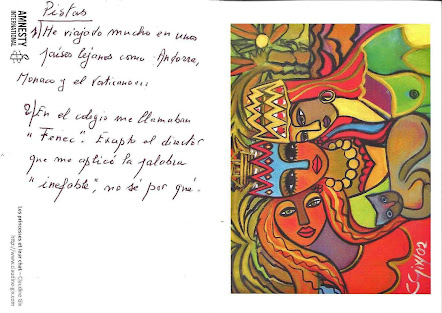 Pistas
1) He viajado mucho en unos
países lejanos como Andorra,
Monaco y el Vaticano...
2) En el colegio me llamaban
"Fenec". Excepto el director
que me aplicó la palabra
"inefable", no sé por qué.
AMNESTY
INTERNATIONAL
Les princesses et leur chat - Claudine Gix
C Gix/02